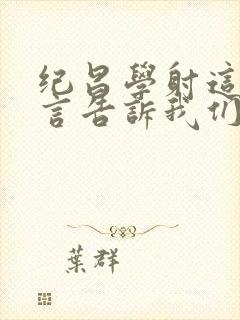 纪昌學射這
言告訴我们
葉群